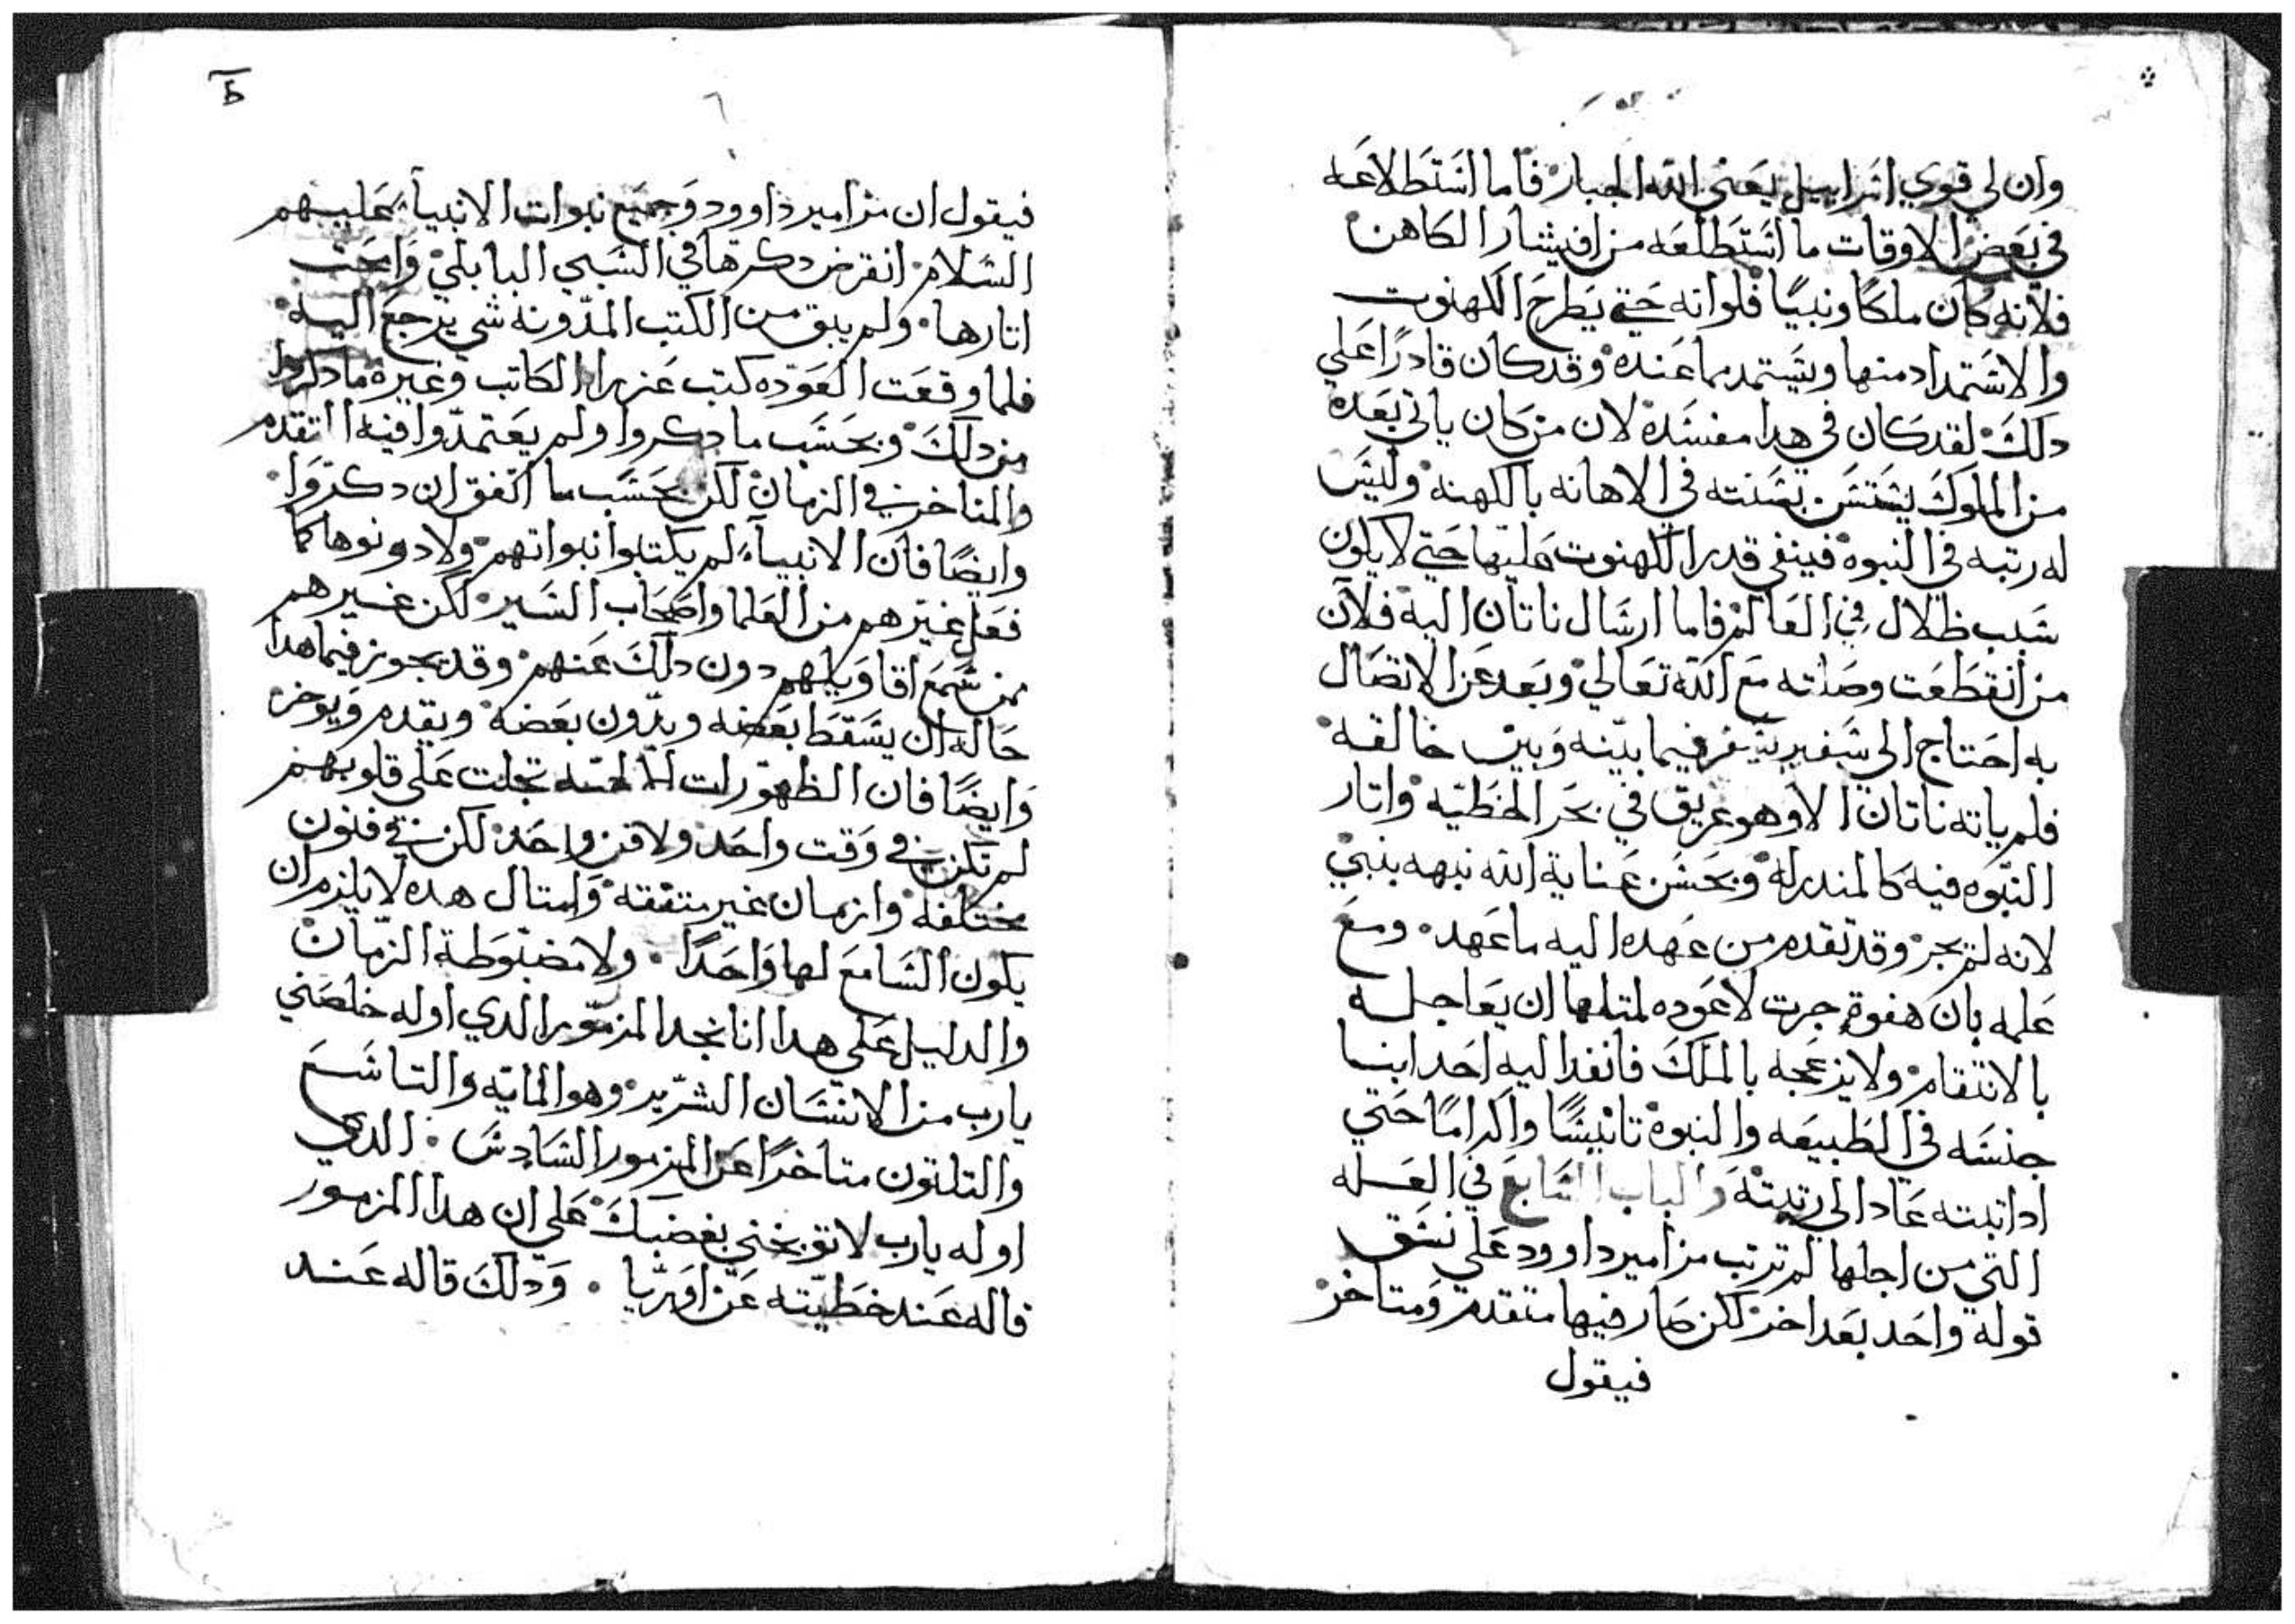 وان لي قوي اسراييل يعني الله الجبار فاما استطلاعه
في بعض الاوقات ما استطلعه من افيشار الكاهن
فلانه كان ملكًا ونبيًا فلو انه حتي يطرح الكهنوت
والاستمداد منها ويستمد مما عنده وقد كان قادرًا علي
دلك لقد كان في هدا مفسده لان من كان ياتي بعده
من الملوك يستسن بسنته في الاهانه بالكهنه وليس
له رتبه في النبوه فينفي قدر الكهنوت عليها حتي لا يكون
سبب ظلال في العالم فاما ارسال ناتان اليه فلان
من انقطعت وصلته مع الله تعالي وبعد عن الاتصال
به احتاج الي سفير يسفر فيما بينه وبين خالقه
فلم ياته ناتان الا وهو غريق في بحر الخطيه واتار
النبوه فيه كالمندرله وبحسن عناية الله نبهه بنبي
لانه لم يجز وقد تقدم من عهده اليه ما عهد ومع
علمه بان هفوة جرت لا عوده لمتلها ان يعاجله
بالانتقام ولا يزعجه بالملك فانفد اليه احد ابنا
جنسه في الطبيعه والنبوه تانيسًا واكرامًا حتي
ادا تبته عاد الي رتبته والباب السابع في العله
التي من اجلها لم ترتب مزامير داوود علي نسق
قوله واحد بعد اخر لكن صار فيها متقدم ومتاخر
فيقول
فيقول ان مزامير داوود وجميع نبوات الانبيا عليهم
السلام انقرض دكرها في السبي البابلي وامحت
اتارها ولم يبق من الكتب المدونه شي يرجع اليه
فلما وقعت العوده كتب عزرا الكاتب وغيره ما دكروا
من دلك وبحسب ما دكروا ولم يعتمدوا فيه التقدم
والتاخر في الزمان لكن بحسب ما اتفق ان دكروا
وايضًا فان الانبيا لم يكتبوا نبواتهم ولا دونوها كما
فعل غيرهم من العلما واصحاب السير لكن غيرهم
ممن سمع اقاويلهم دون دلك عنهم وقد يجوز فيما هدا
حاله ان يسقط بعضه ويدون بعضه ويقدم ويوخر
وايضًا فان الظهورات الالهيه تجلت علي قلوبهم
لم تكن في وقت واحد ولا فن واحد لكن في فنون
مختلفه وازمان غير متفقه وامتال هده لا يلزم ان
يكون السامع لها واحدًا ولا مضبوطة الزمان
والدليل علي هدا انا نجد المزمور الدي اوله خلصني
يارب من الانسان الشرير وهو المايه والتاسع
والتلتون متاخرًا عن المزمور السادس الدي
اوله يارب لا توبخني بغضبك علي ان هدا المزمور
قاله عند خطيته عن اوريا ودلك قاله عند